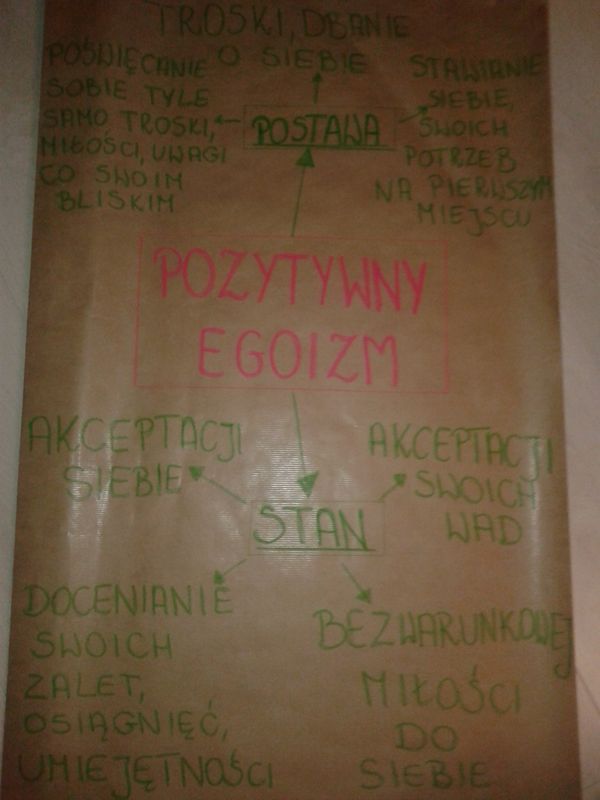 TROSKI, DBANIE
O SIEBIE
POŚWIĘCANIE
SOBIE TYLE
SAMO TROSKI,
MIŁOŚCI, UWAGI
CO SWOIM
BLISKIM
POSTAWA
STAWIANIE
SIEBIE,
SWOICH
POTRZEB
NA PIERWSZYM
MIEJSCU
POZYTYWNY
EGOIZM
AKCEPTACJI
SIEBIE
AKCEPTACJI
SWOICH
WAD
STAN
DOCENIANIE
SWOICH
ZALET,
OSIĄGNIĘĆ,
UMIEJĘTNOŚCI
BEZWARUNKOWEJ
MIŁOŚCI
DO
SIEBIE